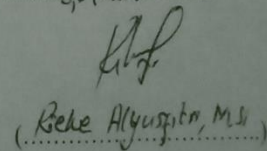 (Rieke Alyusfitri, M.Si)